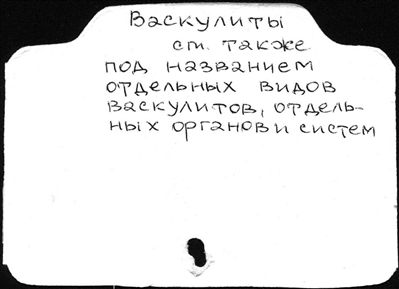 Васкулиты
см. также
под названием
отдельных видов
васкулитов, отдель-
ных органов и систем